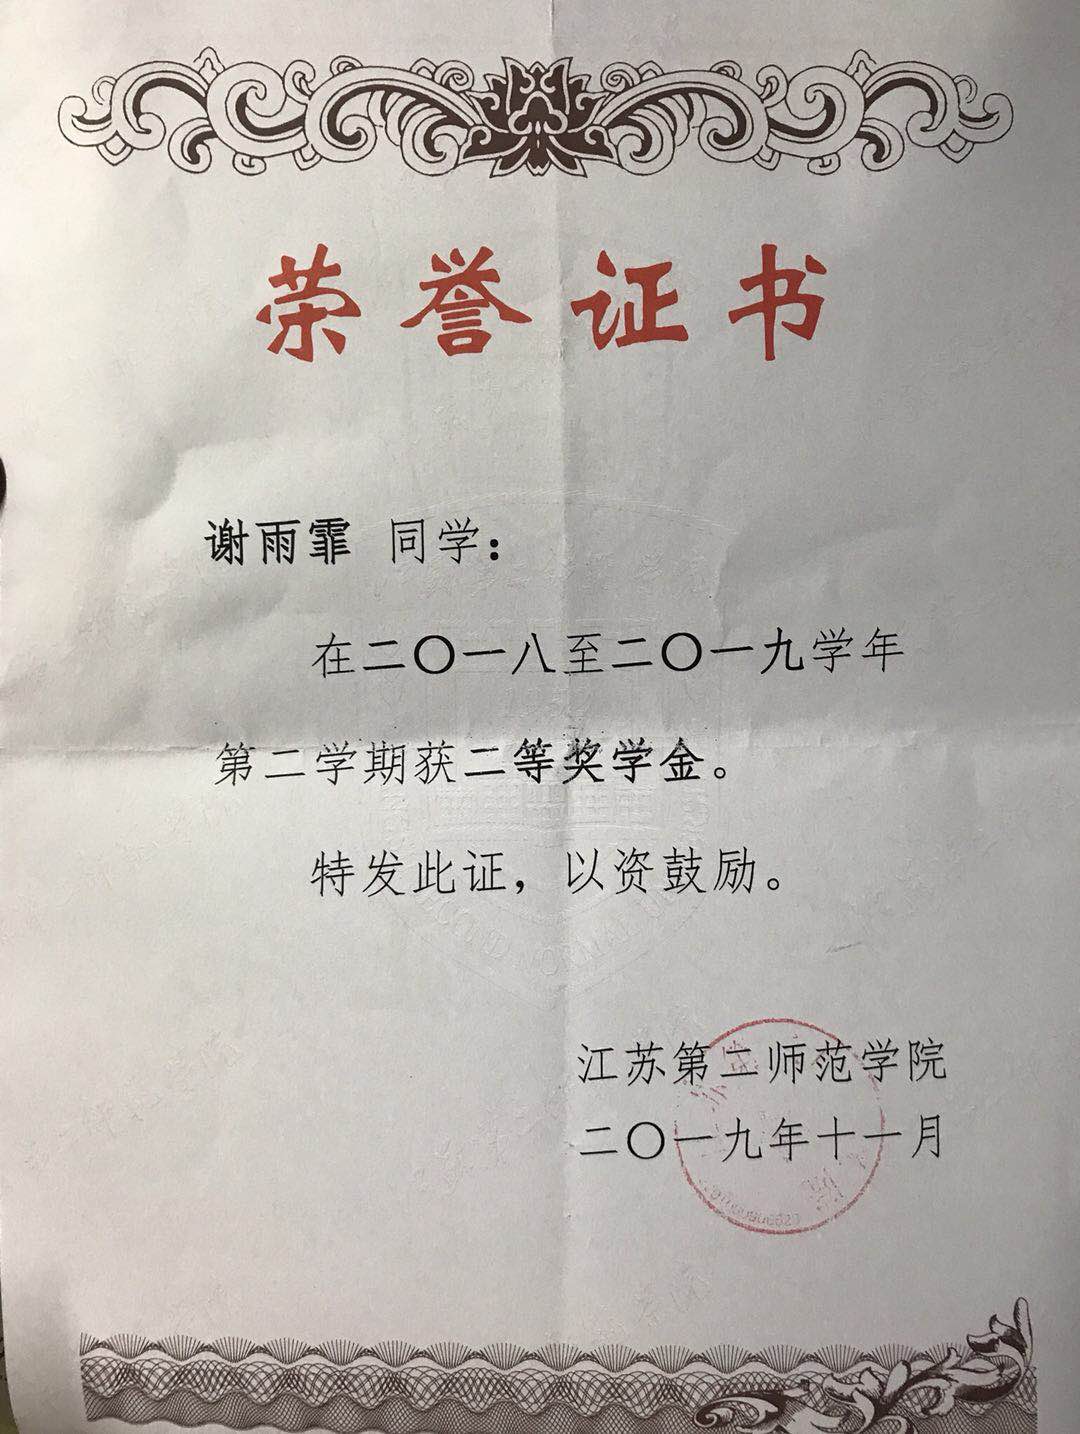 荣誉证书
谢雨霏 同学：
在二〇一八至二〇一九学年
第二学期获二等奖学金。
特发此证，以资鼓励。
江苏第二师范学院
二〇一九年十一月